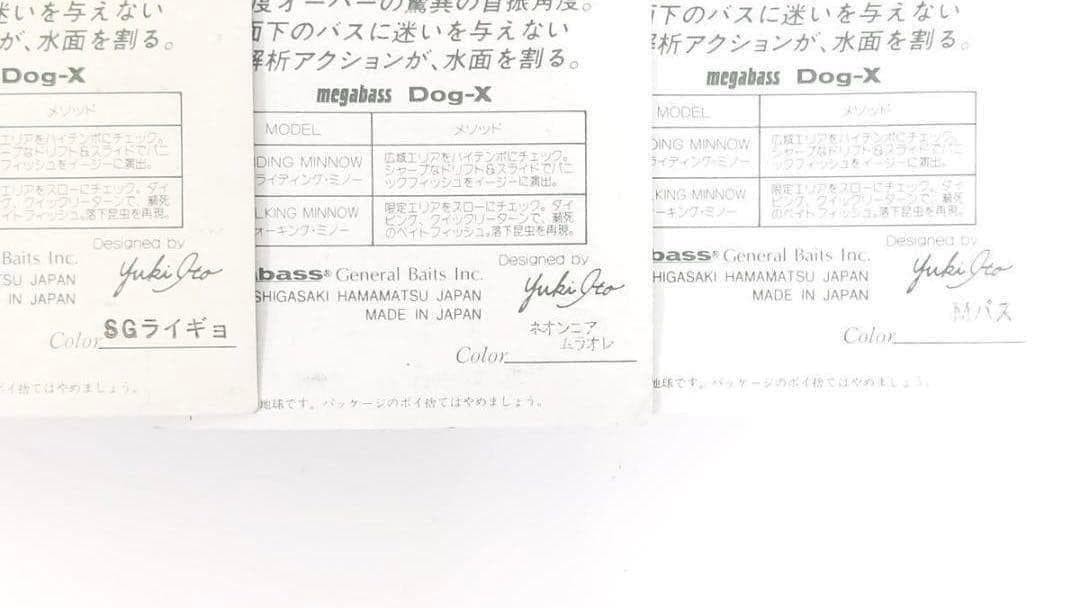 迷いを与えない
が、水面を割る。
Dog-X
メソッド
エリアをハイテンポにチェック。
ープなドリフト&スライドでパニ
フィッシュをイージーに演出。
エリアをスローにチェック。ダイ
ング、クイックリーターンで、瀕死
イトフィッシュ。落下昆虫を再現。
Designed by
Yuki Ito
Baits Inc.
TSU JAPAN
IN JAPAN
Color SGライギョ
ポイ捨てはやめましょう。
度オーバーの驚異の首振角度。
面下のバスに迷いを与えない
解析アクションが、水面を割る。
megabass Dog-X
MODEL メソッド
DING MINNOW
ライディング・ミノー
広域エリアをハイテンポにチェック。
シャープなドリフト&スライドでパニ
ックフィッシュをイージーに演出。
LKING MINNOW
ォーキング・ミノー
限定エリアをスローにチェック、ダイ
ビング、クイックリーターンで、瀕死
のベイトフィッシュ。落下昆虫を再現。
Designed by
Yuki Ito
bass® General Baits Inc.
SHIGASAKI HAMAMATSU JAPAN
MADE IN JAPAN
ネオンニア
ムラオレ
Color
地球です。パッケージのポイ捨てはやめましょう。
面下のバスに迷いを与えない
解析アクションが、水面を割る。
megabass Dog-X
MODEL メソッド
DING MINNOW
ライディング・ミノー
広域エリアをハイテンポにチェック。
シャープなドリフト&スライドでパニ
ックフィッシュをイージーに演出。
KING MINNOW
ーキング・ミノー
限定エリアをスローにチェック、ダイ
ビング、クイックリーターンで、瀕死
のベイトフィッシュ。落下昆虫を再現。
Designed by
Yuki Ito
bass® General Baits Inc.
HIGASAKI HAMAMATSU JAPAN
MADE IN JAPAN
バス
Color
地球です。パッケージのポイ捨てはやめましょう。